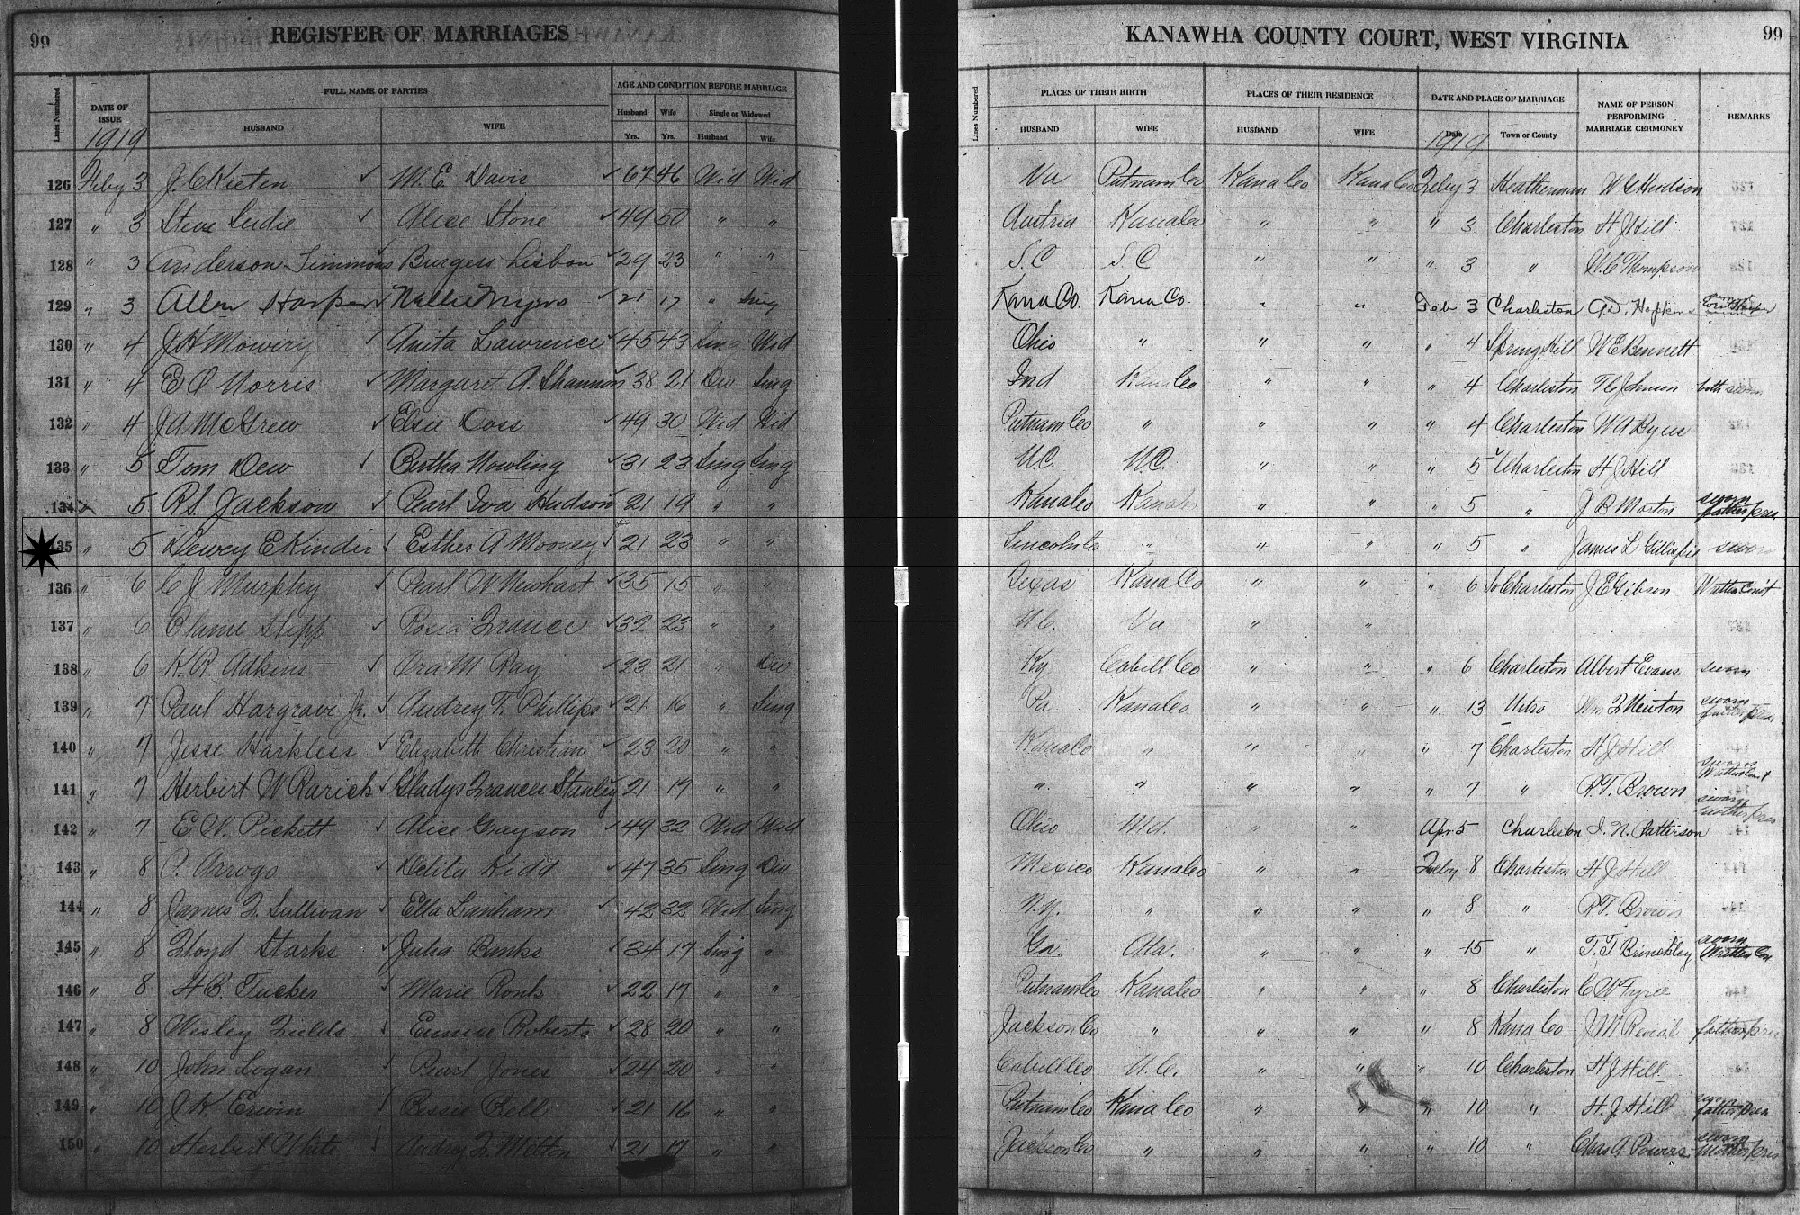 99 REGISTER OF MARRIAGES
KANAWHA COUNTY COURT, WEST VIRGINIA 99
Lines Numbered
DATE OF ISSUE
1919
FULL NAME OF PARTIES
HUSBAND WIFE
AGE AND CONDITION BEFORE MARRIAGE
Husband Wife Single or Widowed
Yrs. Yrs. Husband Wife
Lines Numbered
PLACES OF THEIR BIRTH
HUSBAND WIFE
PLACES OF THEIR RESIDENCE
HUSBAND WIFE
DATE AND PLACE OF MARRIAGE
Date Town or County
1919
NAME OF PERSON PERFORMING MARRIAGE CERMONEY
REMARKS
126 Feby 3 M. E. Davis 67 46 Wid Wid Va Putnam Co Kana Co Kana Co Feby 3
127 " 3 Steve Alice Stone 49 50 " " Austria Kana Co " " " 3 Charleston H J Hill
128 " 3 Anderson Simmons Burgess Lisbon 29 23 " " S. C S C " " " 3 " Thompson
129 " 3 Allen Harper Nellie Myers 21 17 " Sing Kana Co. Kana Co. " " Feb 3 Charleston
130 " 4 J H Mowiry Anita Lawrence 45 43 Sing Wid Ohio " " " " 4 Spring Hill W E Bennett
131 " 4 E O Norris Margaret A. Shannon 38 21 Div Sing Ind Kana Co " " " 4 Charleston T C Johnson both sworn
132 " 4 J A McGrew Elsie Doss 49 30 Wid Wid Putnam Co " " " " 4 Charleston
133 " 5 Tom Dew Bertha Nowling 31 23 Sing Sing N.C. N.C. " " " 5 Charleston H J Hill
134 " 5 R S Jackson Pearl Iva Hudson 21 19 " " Kana Co Kana Co " " " 5 " J B Morton sworn father pres
135 " 5 Dewey E Kinder Esther A Mooney 21 23 " " Lincoln Co " " " " 5 " James L Gillispie sworn
136 " 6 C J Murphy Pearl W Newhart 35 15 " " Texas Kana Co " " " 6 So Charleston J E Gibson Written Con't
137 " 6 32 23 " " N.C. Va " "
138 " 6 K. R Adkins Ora M Ray 23 21 " Div Ky Cabell Co " " " 6 Charleston Albert Evans sworn
139 " 7 Paul Hargrave Jr. Audrey T. Phillips 21 16 " Sing Pa Kana Co " " " 13 sworn
140 " 7 Jesse Harkless Elizabeth Christian 23 20 " " Kana Co " " " " 7 Charleston H J Hill
141 " 7 Herbert W Rarick Gladys Frances Stanley 21 19 " " " " " " " 7 " R. T. Brown sworn
142 " 7 E. W. Pickett Alice Grayson 49 32 Wid Wid Ohio Md. " " Apr 5 Charleston I. N. Patterson
143 " 8 P. Arrogo Delita Kidd 47 35 Sing Div Mexico Kana Co " " Feby 8 Charleston H J Hill
144 " 8 James F. Sullivan Ella Lanham 42 32 Wid Sing N.Y. " " " " 8 " R T. Brown
145 " 8 Floyd Starks Julia Banks 34 17 Sing " Ga. Ala. " " " 15 " sworn
146 " 8 H. B. Tucker Marie Ronk 22 17 " " Putnam Co Kana Co " " " 8 Charleston C W Tyree
147 " 8 Wesley Fields Roberts 28 20 " " Jackson Co " " " " 8 Kana Co
148 " 10 John Logan Pearl Jones 24 20 " " Cabell Co N. C. " " " 10 Charleston H J Hill
149 " 10 J H Erwin Bessie Bell 21 16 " " Putnam Co Kana Co " " " 10 " H. J. Hill father pres
150 " 10 Herbert White Audrey F. Melton 21 17 " " Jackson Co " " " " 10 " Chas A Powers sworn mother pres